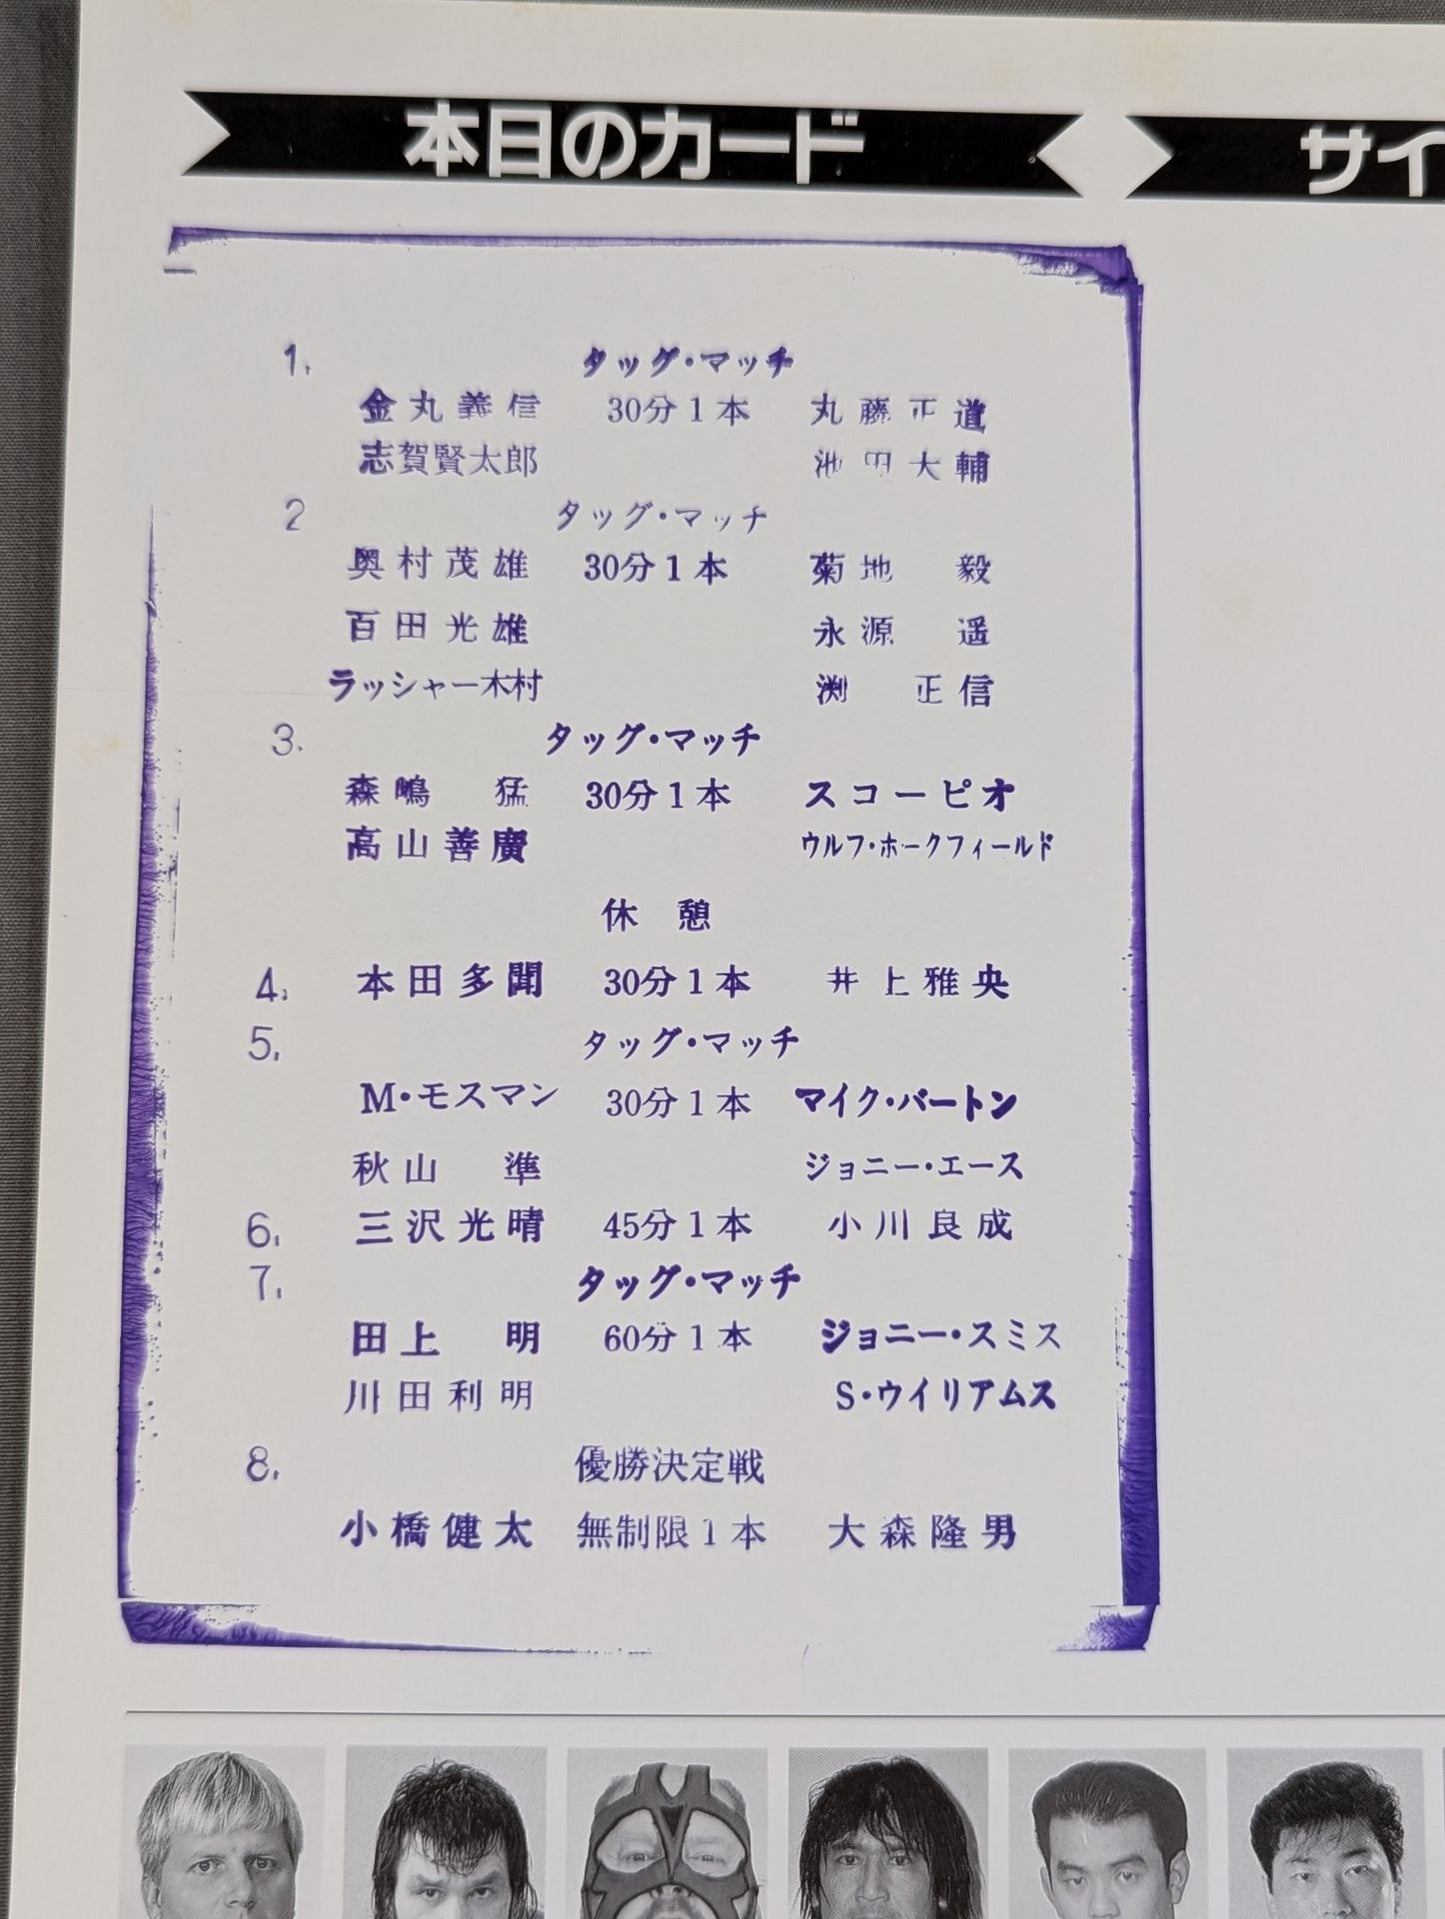 本日のカード
サイ
1. タッグ・マッチ
金丸義信 30分1本 丸藤正道
志賀賢太郎 池田大輔
2 タッグ・マッチ
奥村茂雄 30分1本 菊地 毅
百田光雄 永源 遥
ラッシャー木村 渕 正信
3. タッグ・マッチ
森嶋 猛 30分1本 スコーピオ
高山善廣 ウルフ・ホークフィールド
休憩
4. 本田多聞 30分1本 井上雅央
5. タッグ・マッチ
M・モスマン 30分1本 マイク・バートン
秋山 準 ジョニー・エース
6. 三沢光晴 45分1本 小川良成
7. タッグ・マッチ
田上 明 60分1本 ジョニー・スミス
川田利明 S・ウイリアムス
8. 優勝決定戦
小橋健太 無制限1本 大森隆男